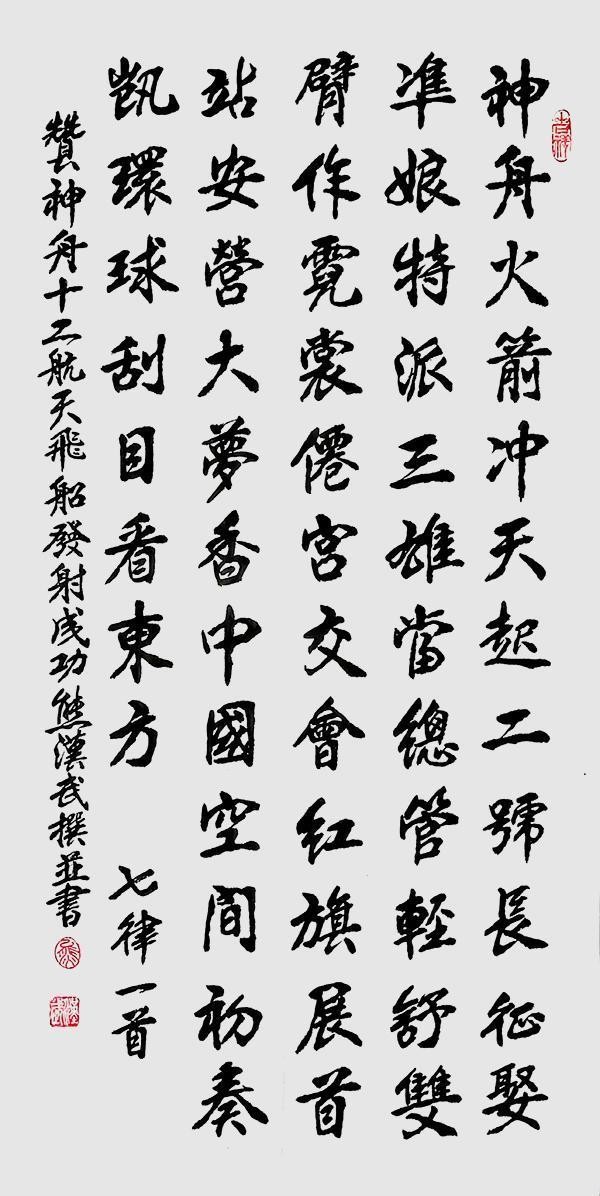 神舟火箭冲天起二號長征娶
凖娘特派三雄當總管輕舒雙
臂作霓裳僊宮交會紅旗展首
站安營大夢香中國空間初奏
凱環球刮目看東方 七律一首
贊神舟十二航天飛船發射成功熊漢武撰並書